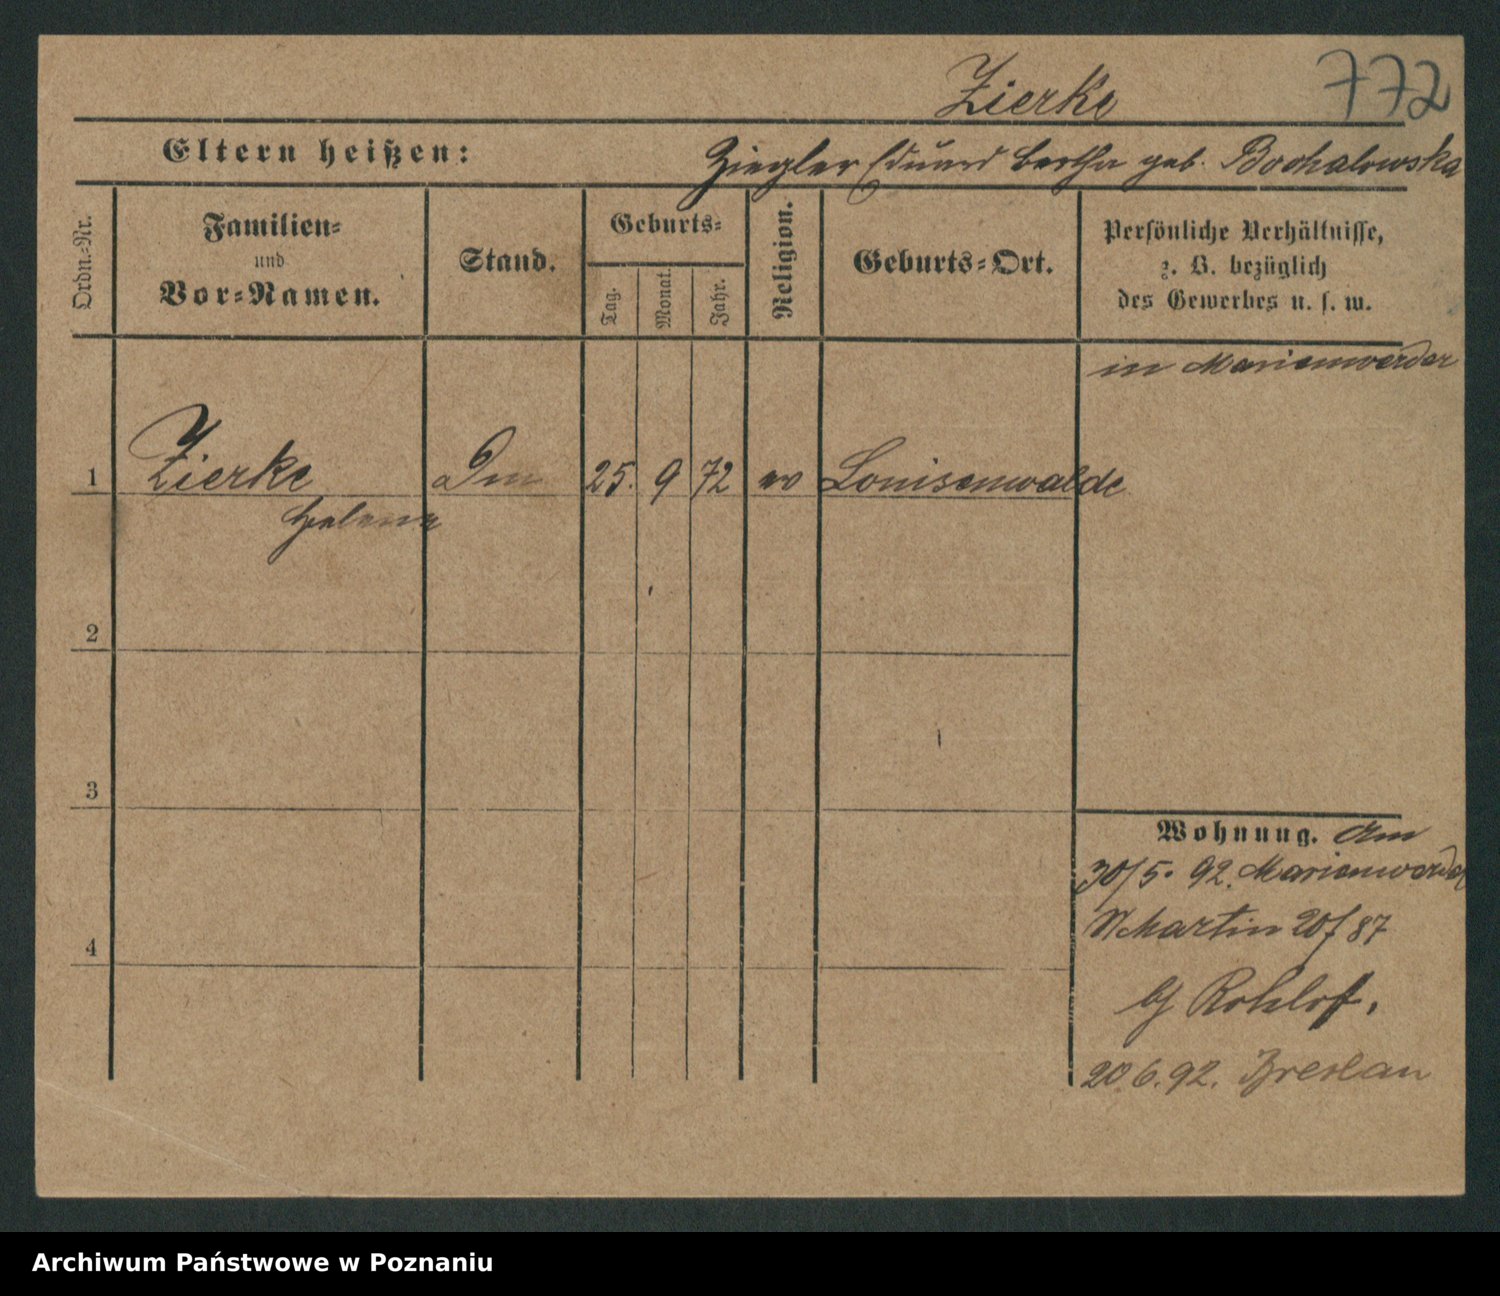 Zierke 772
Eltern heißen: Ziegler Eduard Bertha geb. Bochalowska
Ordn.-Nr.
Familien-
und
Vor-Namen.
Stand.
Geburts-
Tag.
Monat.
Jahr.
Religion.
Geburts-Ort.
Persönliche Verhältnisse,
z. B. bezüglich
des Gewerbes u. s. w.
in Marienwerder
1 Zierke 25. 9 72 ev Louisenwalde
Helene
2
3
4
Wohnung. Am
30/5. 92. Marienwerder
St Martin 20/87
b/ Rohlof.
20.6.92. Breslau
Archiwum Państwowe w Poznaniu